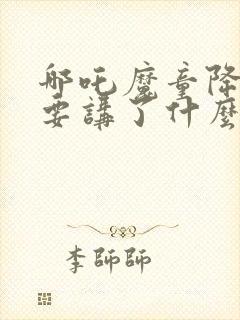 哪吒魔童降
要講了什麼
李師師